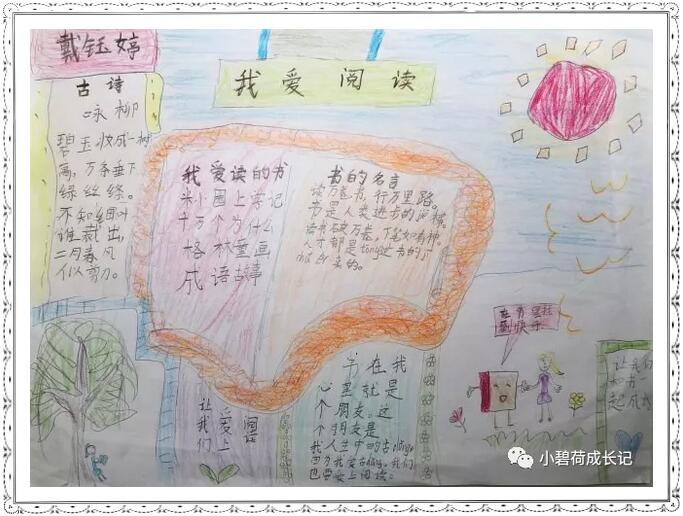 戴钰婷
我爱阅读
古诗
咏柳
碧玉妆成一树
高，万条垂下
绿丝绦。
不知细叶
谁裁出，
二月春风
似剪刀。
我爱读的书
米小圈上学记
十万个为什么
格林童画
成语古事
书的名言
读万卷书，行万里路。
书是人类进步的阶梯。
读书破万卷，下笔如有神。
人才都是tōng过书的
让我们
爱上
阅读
书在我
心里就是
个朋友。这
个朋友是
我人生中的
上阅读。
在书里找
到快乐
让我们
和书一
起成长
小碧荷成长记